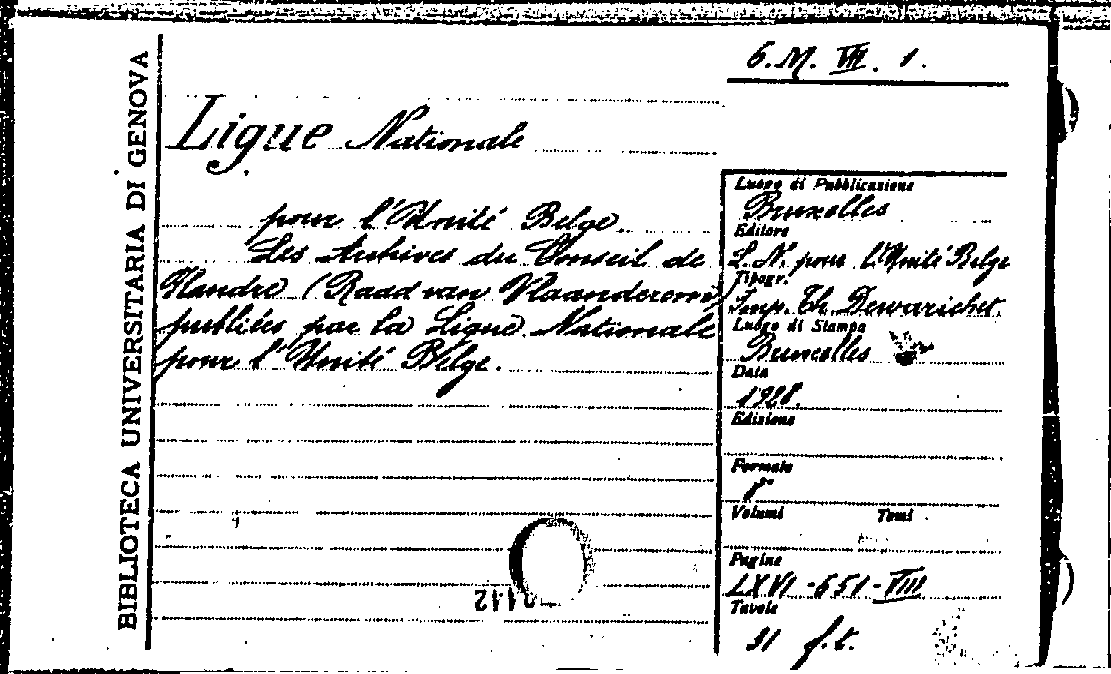 BIBLIOTECA UNIVERSITARIA DI GENOVA
6. M. VIII. 1.
Ligue Nationale
pour l'Unité Belge
Les Archives du Conseil de
Flandre (Raad van Vlaanderen)
publiées par la Ligue Nationale
pour l'Unité Belge.
Luogo di Pubblicazione
Bruxelles
Editore
L. N. pour l'Unité Belge
Tipogr.
Imp. Th. Dewarichet.
Luogo di Stampa
Bruxelles
Data
1928.
Edizione
Formato
8°
Volumi Tomi
Pagine
LXVI-651-VIII
Tavole
31 f.t.